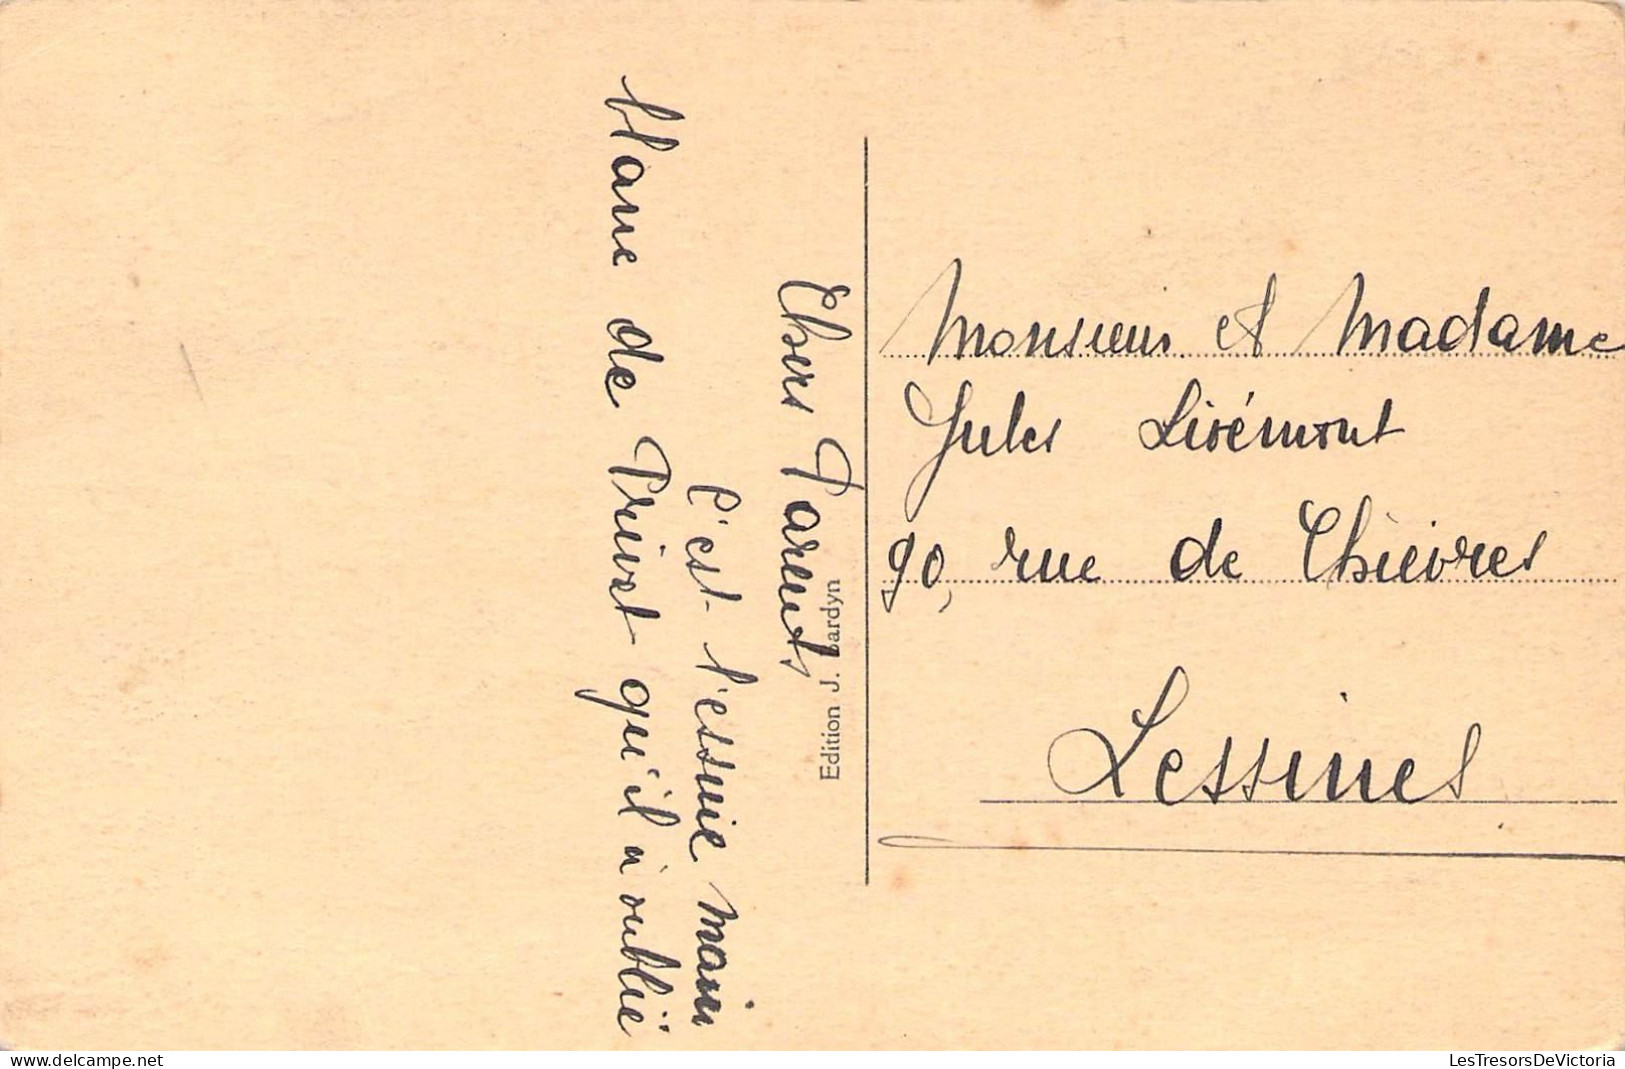 Chers Parents
C'est l'essuie main
blanc de Privat qu'il a oublié
Edition J. Jardyn
Monsieur et Madame
Jules Lisémont
90, rue de Chièvres
Lessines
delcampe.net
LesTresorsDeVictoria